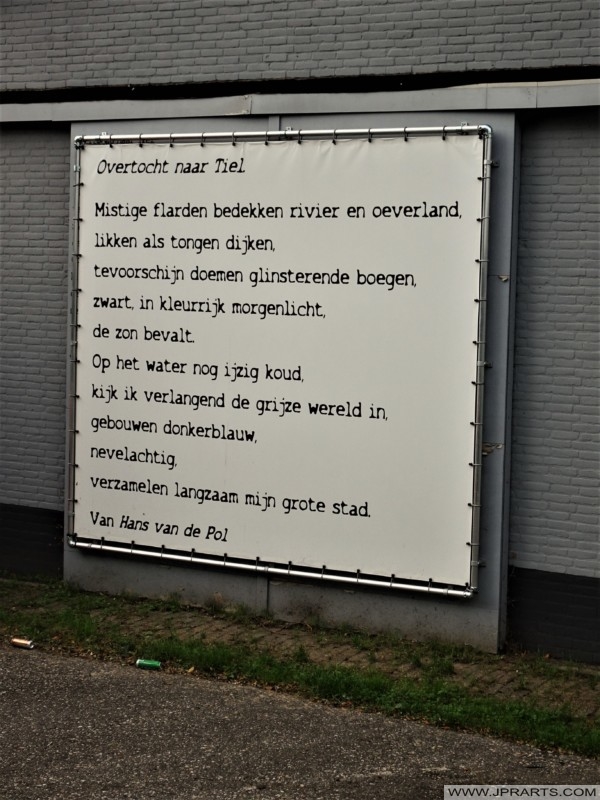 Overtocht naar Tiel
Mistige flarden bedekken rivier en oeverland,
likken als tongen dijken,
tevoorschijn doemen glinsterende boegen,
zwart, in kleurrijk morgenlicht,
de zon bevalt.
Op het water nog ijzig koud,
kijk ik verlangend de grijze wereld in,
gebouwen donkerblauw,
nevelachtig,
verzamelen langzaam mijn grote stad.
Van Hans van de Pol
WWW.JPRARTS.COM